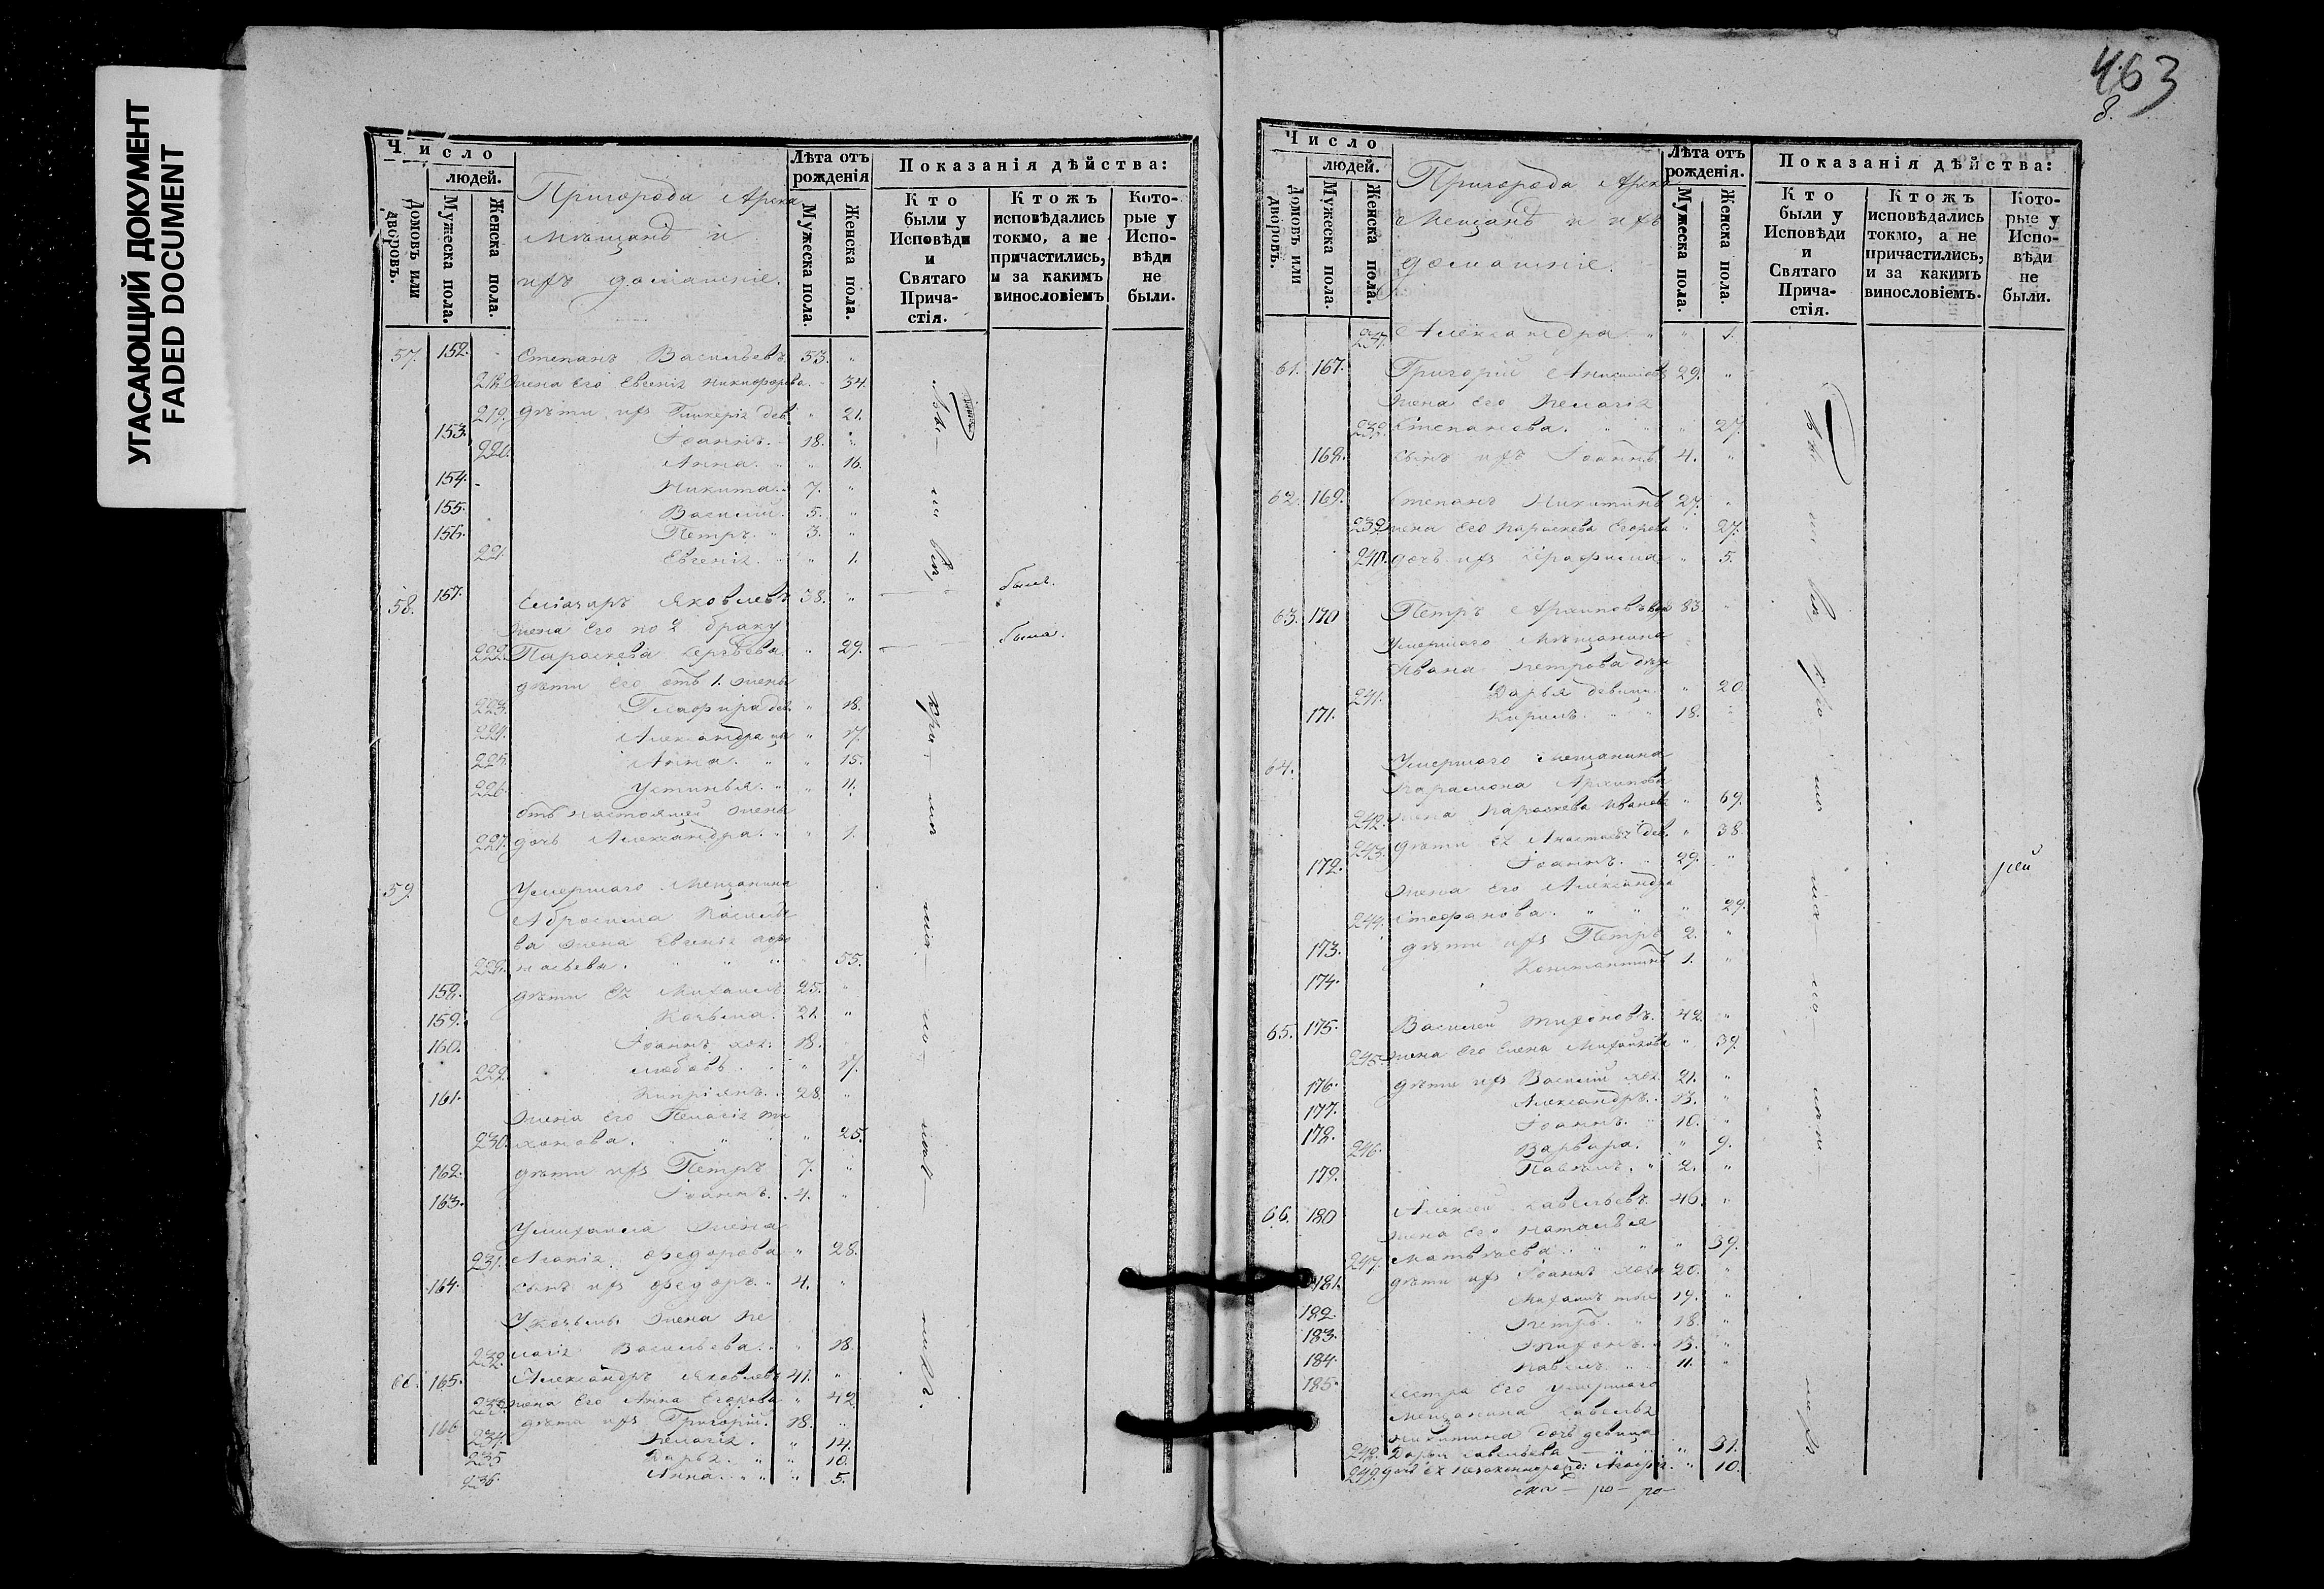 УГАСАЮЩИЙ ДОКУМЕНТ
FADED DOCUMENT
Число
людей.
Домовъ или дворовъ.
Мужеска пола.
Женска пола.
Пригорода Арска
Мѣщанъ и
ихъ домашніе.
Лѣта отъ рожденія
Мужеска пола.
Женска пола.
Показанія дѣйства:
Кто были у Исповѣди и Святаго Прича-стія.
Ктожъ исповѣдались токмо, а не причастились, и за какимъ винословіемъ
Кото-рые у Испо-вѣди не были.
57. 152. Степанъ Васильевъ 53. "
218. Жена его Евгенія Никифорова. " 34.
219. дѣти ихъ Гликерія дев. " 21.
153. Іоаннъ. 18. "
220. Анна. " 16.
154. Никита. 7. "
155. Василій. 5. "
156. Петръ. " 3. "
221. Евгенія. " " 1.
58. 157. Яковлевъ 38. " былъ.
Жена его по 2 браку
222. Параскева Сергѣева. " 29. была.
дѣти его отъ 1. жены
223. Глафира дев. " 18.
224. Александра " 17.
225. Анна. " " 15.
226. Устинья. " " 11.
отъ настоящей жены
227. дочь Александра. " " 1.
59. Умершаго Мещанина
Абросима Василье
ва жена Евгенія Афо
228. насьева. " " " 55.
158. дѣти ея Михаилъ 25. "
159. Козьма. 21. "
160. Іоаннъ хол. 18.
229. Любовь. " 17.
161. Кипріянъ. 28. "
Жена его Пелагія Ти
230. хонова. " " " 25.
162. дѣти ихъ Петръ 7. "
163. Іоаннъ. 4. "
У Михаила жена
231. Агапія Федорова " 28.
164. сынъ ихъ Федоръ. " 4. "
У Козьмы жена Пе
232. лагія Васильева. " 18.
60. 165. Александръ Яковлевъ 41. "
233. Жена его Анна Егорова " 42.
166. дѣти ихъ Григорій. 18. "
234. Пелагія. " 14.
235. Дарья. " " 10.
236. Анна. " " " 5.
463
8.
Число
людей.
Домовъ или дворовъ.
Мужеска пола.
Женска пола.
Пригорода Арска
Мещанъ и ихъ
домашніе.
Лѣта отъ рожденія.
Мужеска пола.
Женска пола.
Показанія дѣйства:
Кто были у Исповѣди и Святаго Прича-стія.
Ктожъ исповѣдались токмо, а не причастились, и за какимъ винословіемъ.
Кото-рые у Испо-вѣди не были.
237. Александра " " 1.
61. 167. Григорій Анисимовъ 29. "
Жена его Пелагія
238. Степанова. " " " 27.
168. сынъ ихъ Іоаннъ 4. "
62. 169. Степанъ Никитинъ 27. "
239. Жена его Параскева Егорова " 27.
240. дочь ихъ Серафима " 5.
63. 170 Петръ Архиповъ 83. "
Умершаго Мѣщанина
Ивана Петрова дѣти
241. Дарья девица " 20.
171. Кирилъ. " " 18. "
64. Умершаго мещанина
Парамона Архипова
242. Жена Параскева Иванова " 69.
243. дѣти ея Анастасія дев. " 38.
172. Іоаннъ. " 29. "
Жена его Александра
244. Стефанова. " " " 29.
173. дѣти ихъ Петръ 2. "
174. Константинъ 1. "
65. 175. Василій Тихоновъ. 42. "
245. Жена его Елена Михайлова " 39.
176. дѣти ихъ Василій хол. 21. "
177. Александръ. 13. "
178. Іоаннъ. " 10. "
246. Варвара. " 9.
179. Павелъ. " 2. "
66. 180 Алексей Савельевъ 46. "
Жена его Наталья
247. Матвѣева. " " " 39.
181. дѣти ихъ Іоаннъ 20. "
182. Михаилъ 19. "
183. Петръ. " 18. "
184. Тихонъ. 13. "
185. Павелъ. " 11. "
Сестра его умершаго
мещанина Савелья
Никитина дочь девица
248. Дарья Савельева " " 31.
249. " 10.